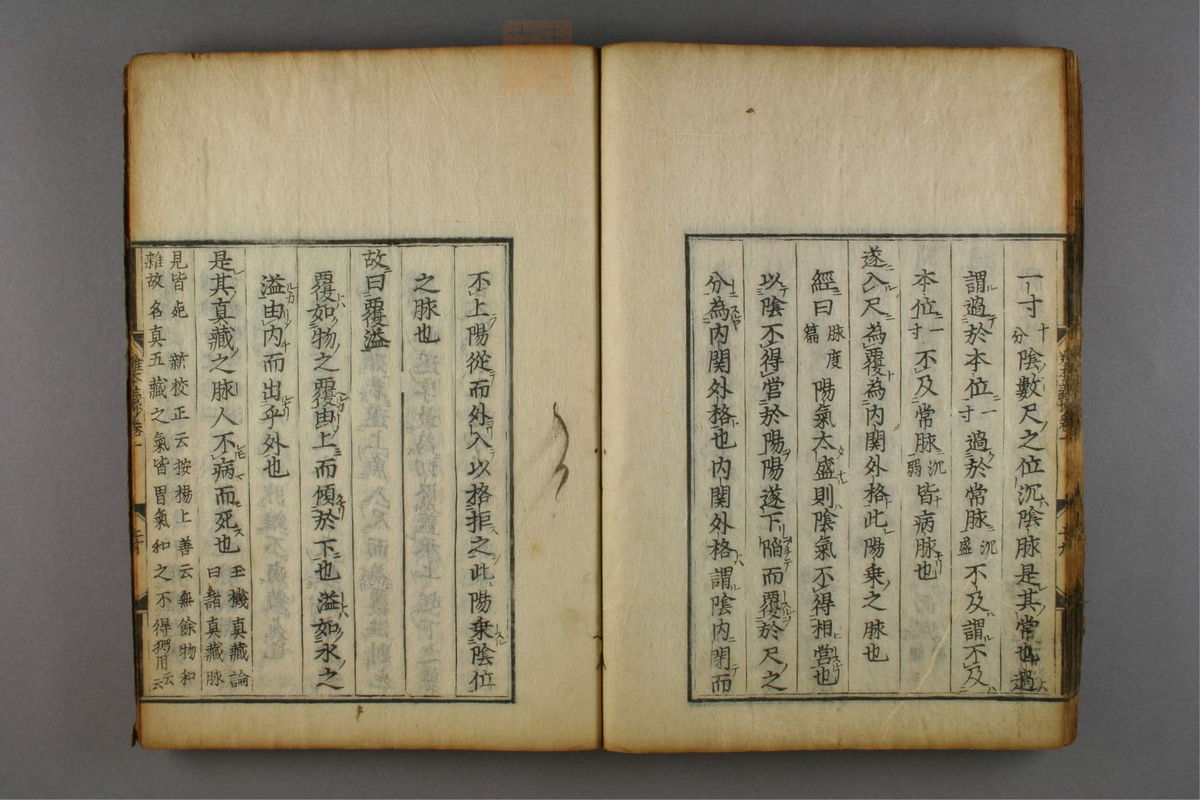 一寸十分陰數尺之位沉陰脉是其常也過
謂過於本位一寸過於常脉沉盛不及謂不及
本位一寸不及常脉沉弱皆病脉也
遂入尺為覆為内関外格此陽乗之脉也
經曰脉度篇陽氣大盛則陰氣不得相営也
以陰不得営於陽陽遂下陥而覆於尺之
分為内関外格也内関外格謂陰内閉而
不上陽從而外入以格拒之此陽乗陰位
之脉也
故曰覆溢
覆如物之覆由上而傾於下也溢如水之
溢由内而出乎外也
是其真藏之脉人不病而死也王機真藏論曰諸真藏脉
見皆死 新校正云按楊上善云無餘物和
雜故名真五藏之氣皆胃氣和之不得獨用云云